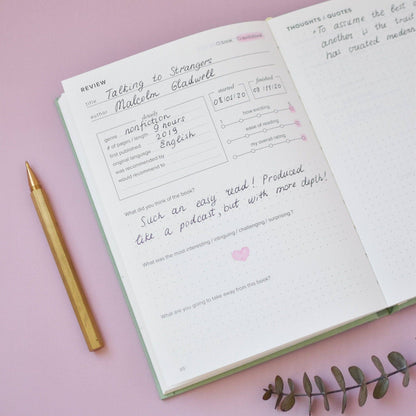 REVIEW
book
audiobook
title Talking to Strangers
author Malcolm Gladwell
genre nonfiction
# of pages / length 9 hours
first published 2019
original language English
was recommended by
would recommend to
started
08/05/20
finished
08/18/20
how exciting
ease of reading
my overall rating
What did you think of the book?
Such an easy read! Produced
like a podcast, but with more depth!
What was the most interesting / intriguing / challenging / surprising?
What are you going to take away from this book?
THOUGHTS & QUOTES
To assume the best
another is the trait
has created modern